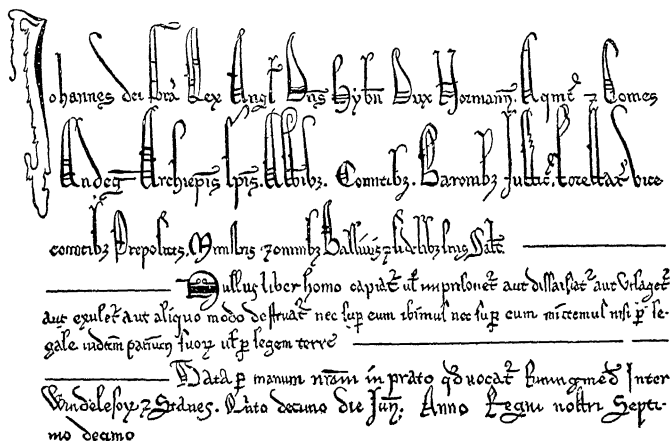 Johannes dei Gra Rex Angl Dns Hybn Dux Normann. Aqmt z Comes
Andeg Archiepis Epis. Abbibz. Comitibz. Baronibz Justic. Forestar vice
comitibz Prepositis. Ministris z omnibz Ballivis z fidelibz suis Salt
Nullus liber homo capiat vl imprisonet aut dissaisiat aut utlaget
aut exulet aut aliquo modo destruat nec sup eum ibimus nec sup eum mittemus nisi p le-
gale judicm parium suorz vl p legem terre
Data p manum nram in prato qd vocat Runingmed Inter
Windelesorz Stanes. Quinto decimo die Jun; Anno Regni nostri Septi-
mo decimo